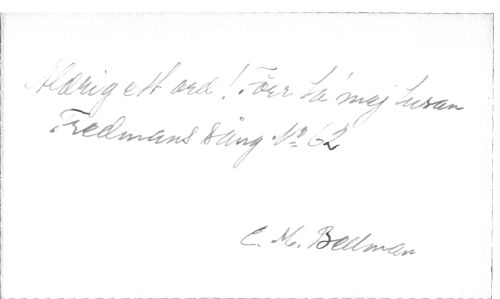 Aldrig ett ord! Förr ta' mej lusan
Fredmans sång No 62
C. M. Bellman